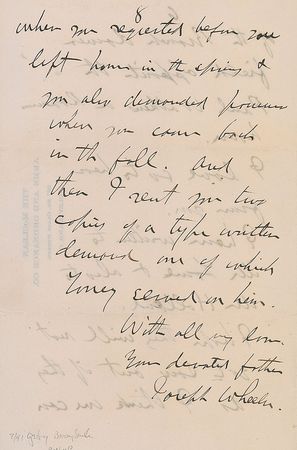 8
when you requested before you
left home in the spring &
you also demanded
when you came back
in the fall. And
then I sent you two
copies of a type written
demand one of which
served on him.
With all my love
Your devoted father
Joseph Wheeler.